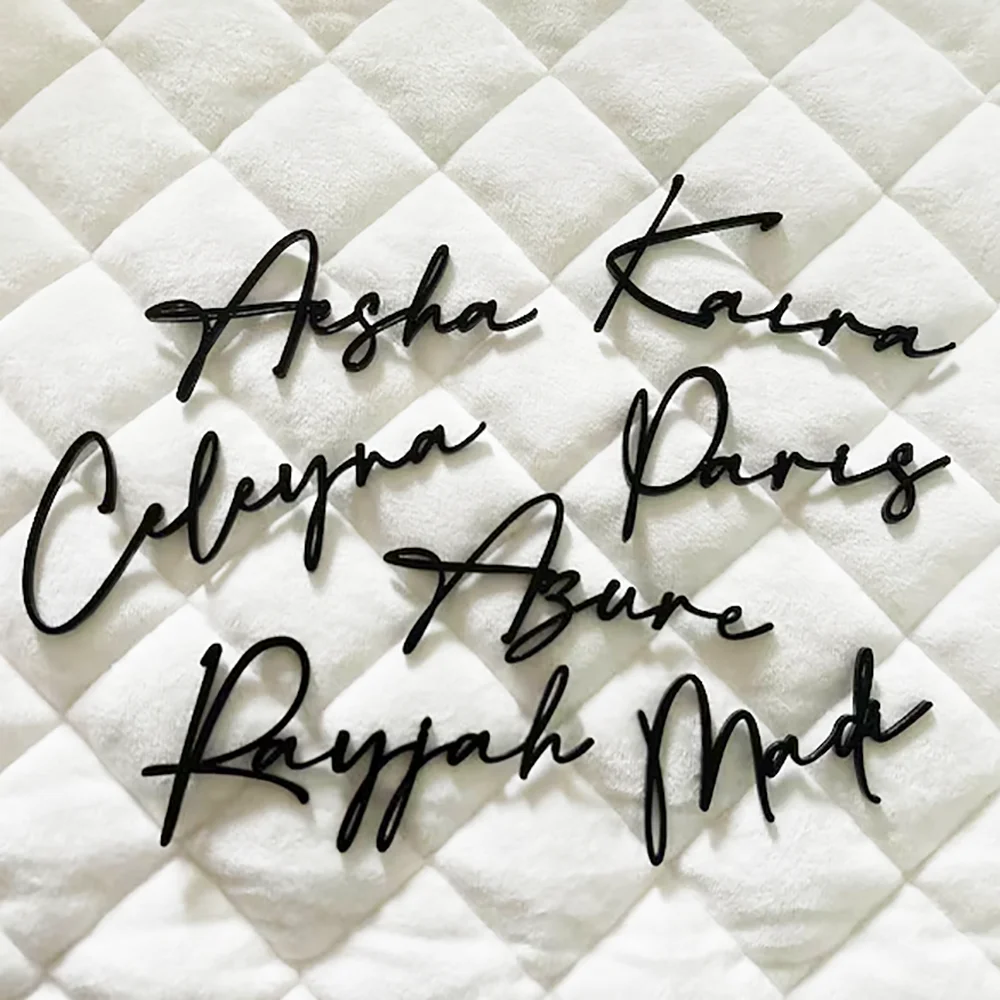 Aesha
Kaira
Celeyna
Paris
Azure
Rayjah
Madi